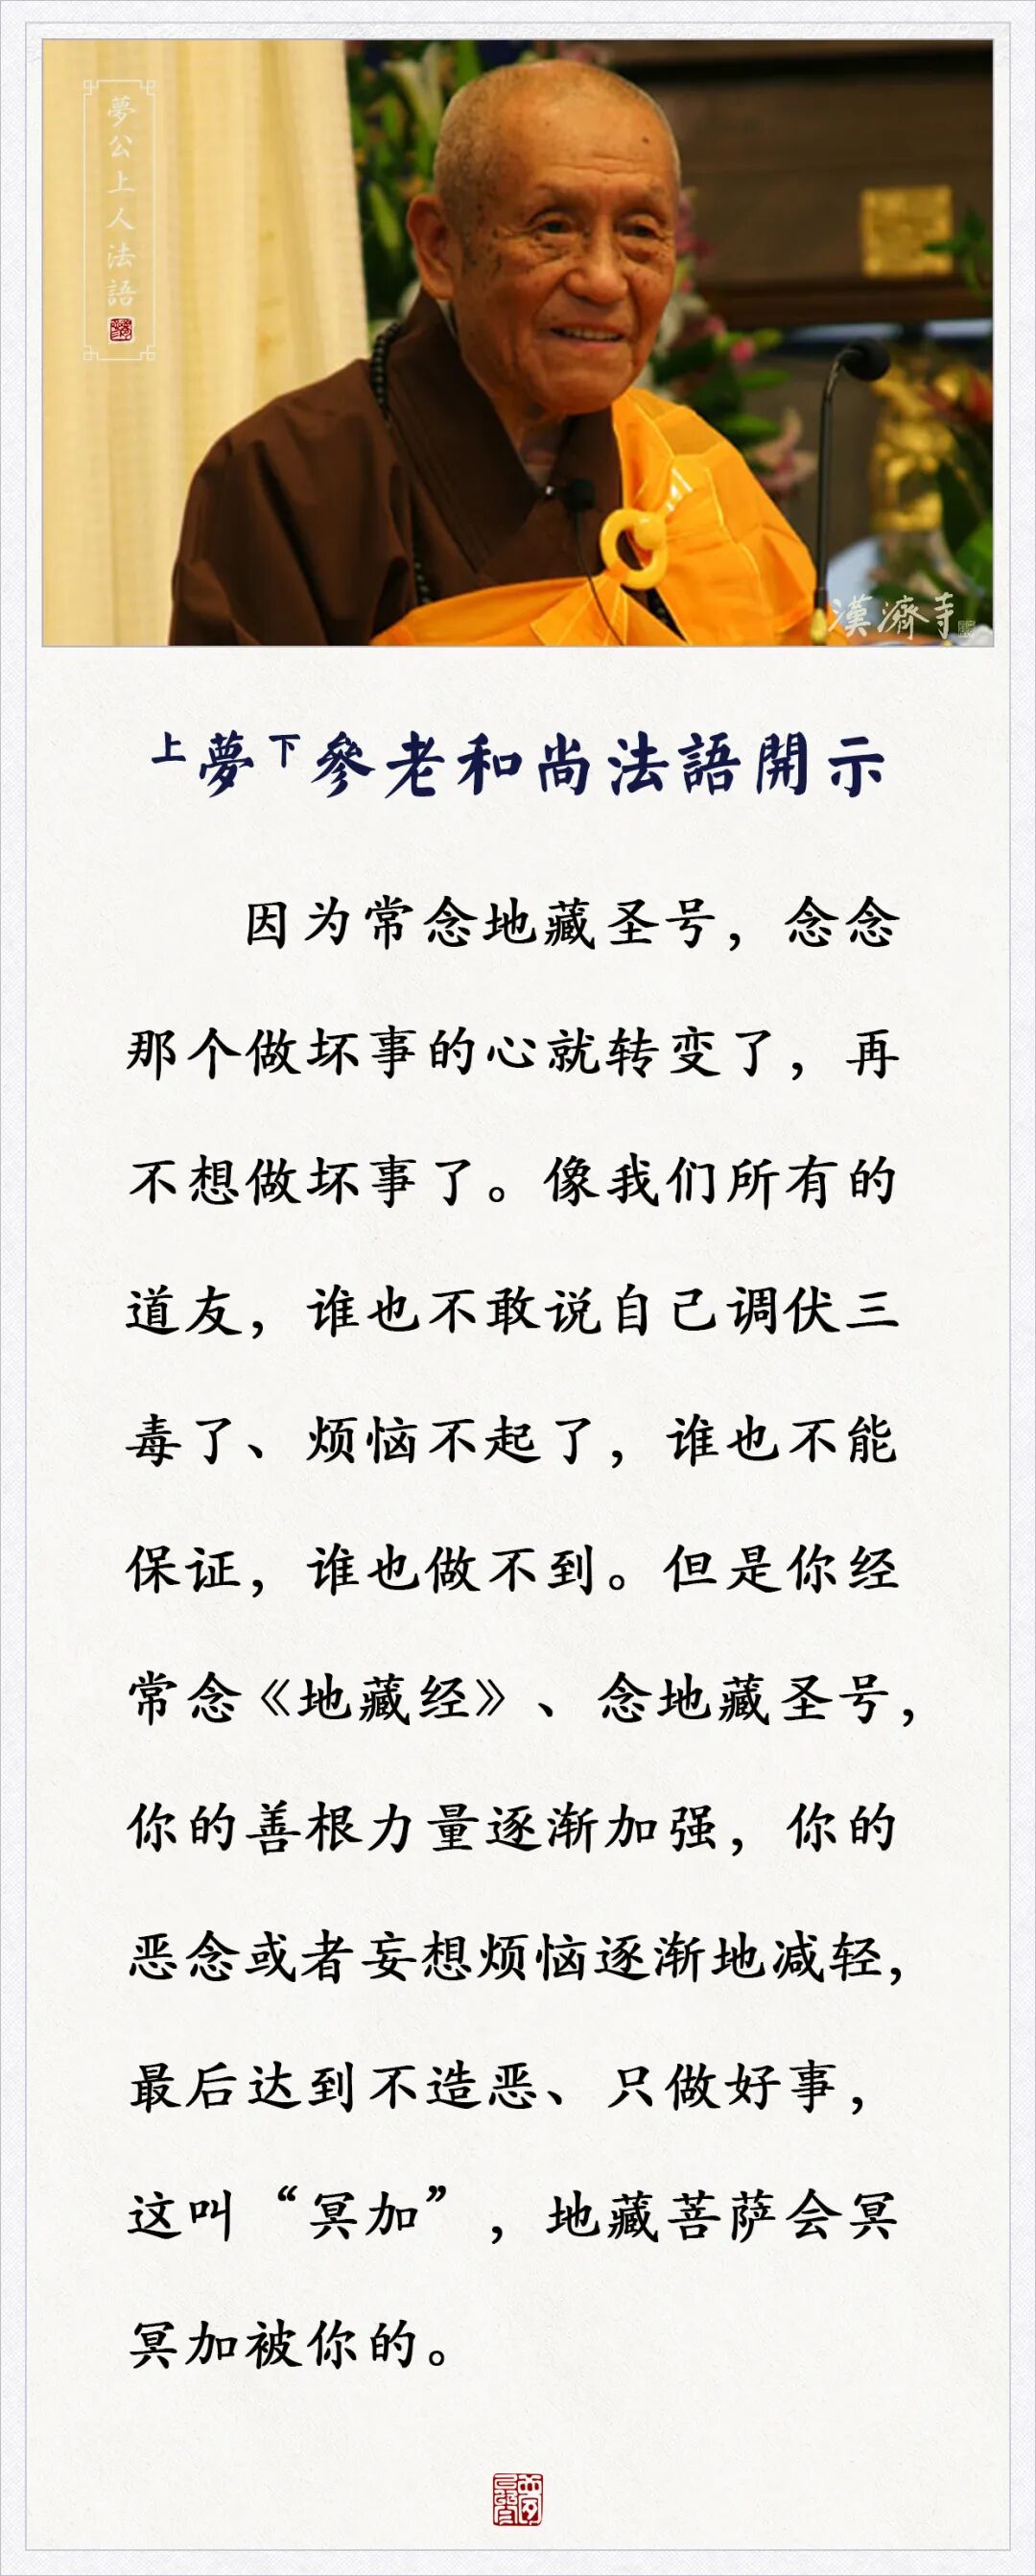 夢公上人法語
漢濟寺
上夢下參老和尚法語開示
因为常念地藏圣号，念念
那个做坏事的心就转变了，再
不想做坏事了。像我们所有的
道友，谁也不敢说自己调伏三
毒了、烦恼不起了，谁也不能
保证，谁也做不到。但是你经
常念《地藏经》、念地藏圣号，
你的善根力量逐渐加强，你的
恶念或者妄想烦恼逐渐地减轻，
最后达到不造恶、只做好事，
这叫“冥加”，地藏菩萨会冥
冥加被你的。